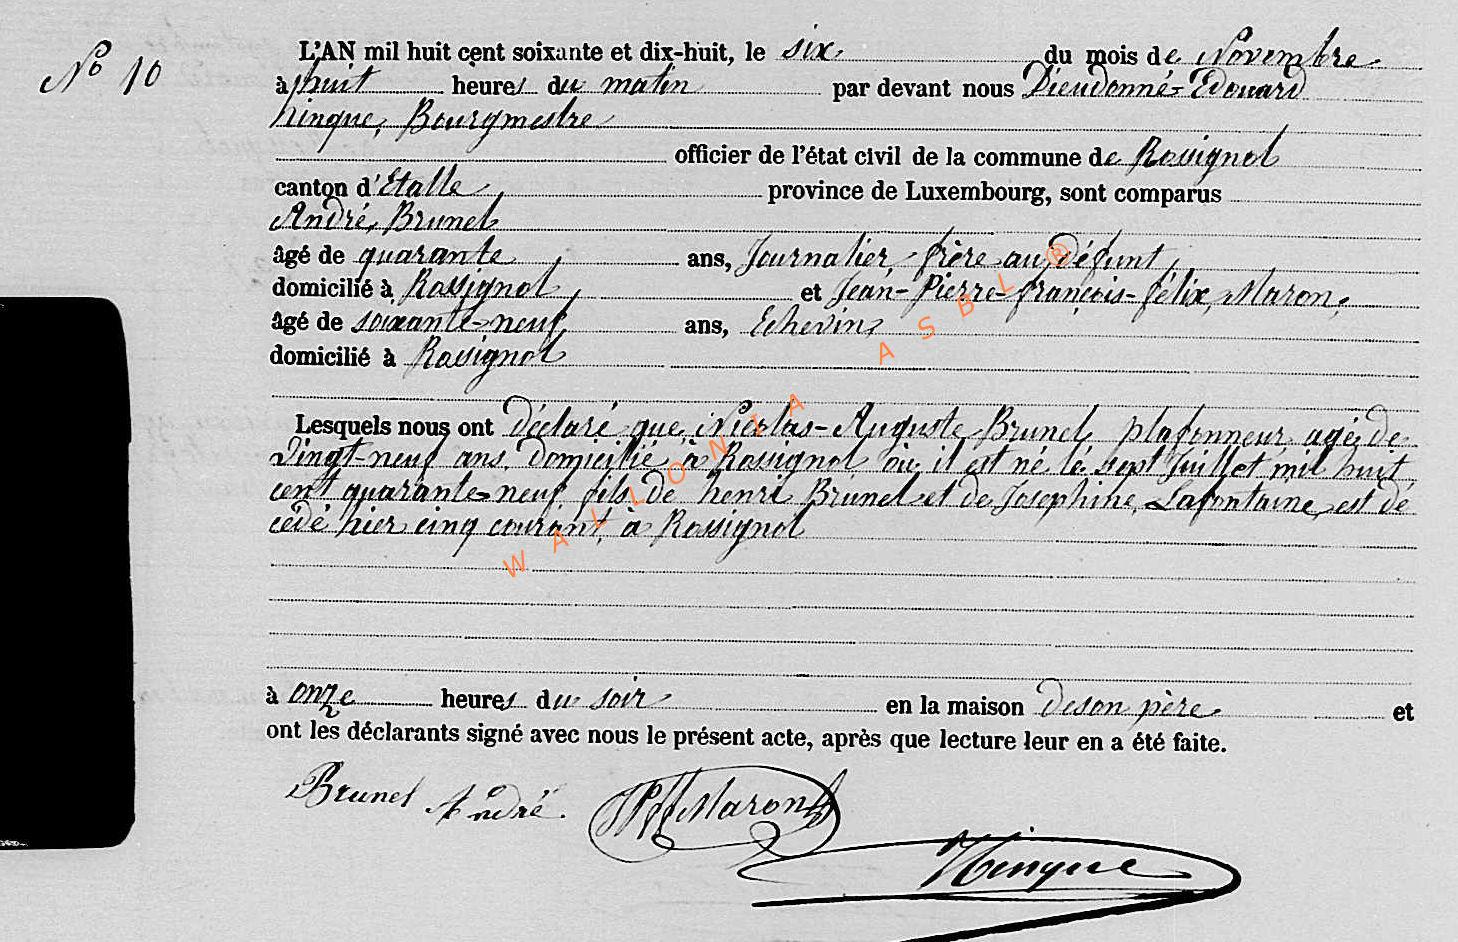 No 10
L'AN mil huit cent soixante et dix-huit, le six du mois de Novembre
à huit heures du matin par devant nous Dieudonné-Edouard
hinque, Bourgmestre
officier de l'état civil de la commune de Rossignol
canton d'Etalle province de Luxembourg, sont comparus
André, Brunel
âgé de quarante ans, Journalier, frère au défunt,
domicilié à Rossignol, et Jean-Pierre-françois-félix, Maron,
âgé de soixante-neuf ans, Echevin,
domicilié à Rossignol
Lesquels nous ont déclaré que, Nicolas-Auguste Brunel, plafonneur, agé de
Vingt-neuf ans, domicilié à Rossignol où il est né le sept Juillet mil huit
cent quarante-neuf fils de henri Brunel et de Josephine, Lafontaine, est dé
cédé hier cinq courant, à Rossignol
à onze heures du soir en la maison de son père et
ont les déclarants signé avec nous le présent acte, après que lecture leur en a été faite.
Brunel André. JPFF Maron
Hinque
WALLONIA ASBL ®